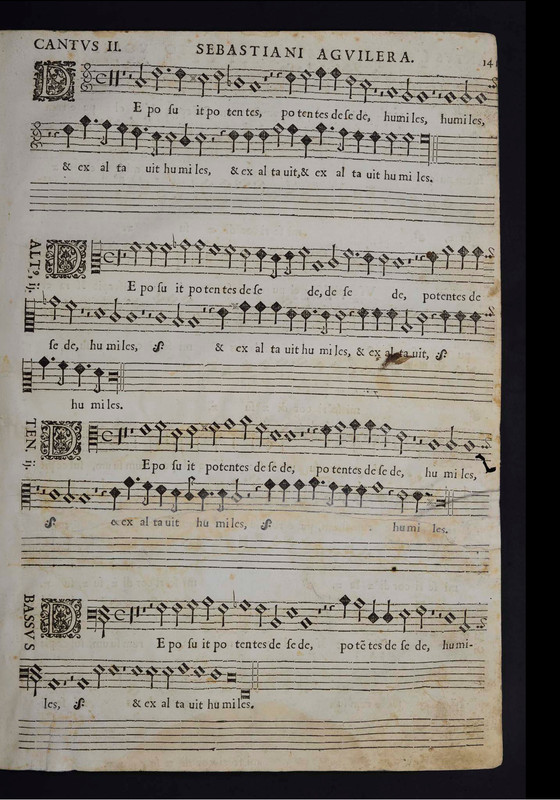 CANTVS II. SEBASTIANI AGVILERA. 141
DE po su it po ten tes, po ten tes de se de, humi les, humi les,
& ex al ta uit hu mi les, & ex al ta uit, & ex al ta uit hu mi les.
ALTˢ, ij.
DE po su it po ten tes de se de, de se de, potentes de
se de, hu mi les, ij. & ex al ta uit hu mi les, & ex al ta uit, ij.
hu mi les.
TEN. ij.
DE po su it potentes de se de, po tentes de se de, hu mi les,
ij. & ex al ta uit hu mi les, ij. hu mi les.
BASSVS
DE po su it po tentes de se de, po tẽ tes de se de, hu mi-
les, ij. & ex al ta uit hu mi les.